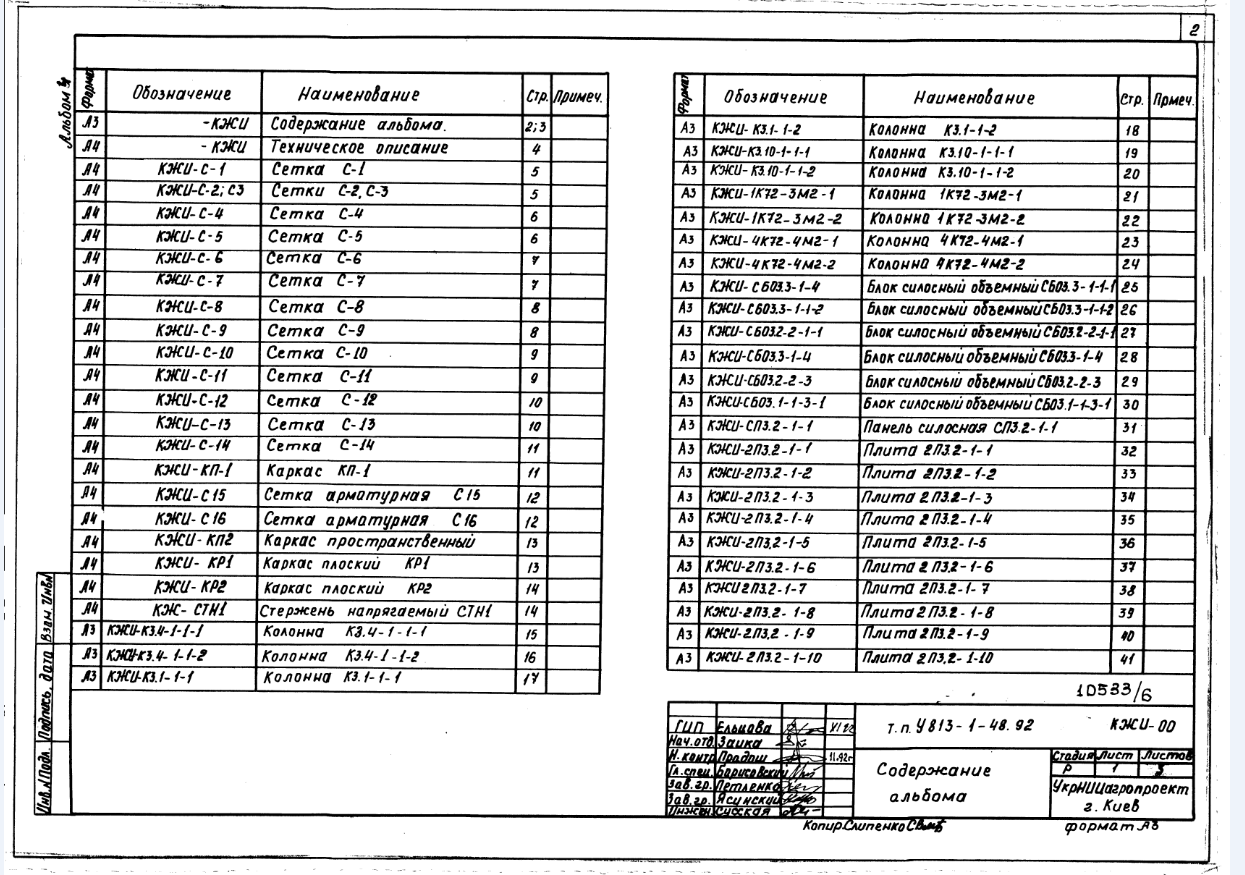 2
Альбом
Формат Обозначение Наименование Стр. Примеч.
А3 -КЖИ Содержание альбома. 2;3
А4 -КЖИ Техническое описание 4
А4 КЖИ-С-1 Сетка С-1 5
А4 КЖИ-С-2; С3 Сетки С-2, С-3 5
А4 КЖИ-С-4 Сетка С-4 6
А4 КЖИ-С-5 Сетка С-5 6
А4 КЖИ-С-6 Сетка С-6 7
А4 КЖИ-С-7 Сетка С-7 7
А4 КЖИ-С-8 Сетка С-8 8
А4 КЖИ-С-9 Сетка С-9 8
А4 КЖИ-С-10 Сетка С-10 9
А4 КЖИ-С-11 Сетка С-11 9
А4 КЖИ-С-12 Сетка С-12 10
А4 КЖИ-С-13 Сетка С-13 10
А4 КЖИ-С-14 Сетка С-14 11
А4 КЖИ-КП-1 Каркас КП-1 11
А4 КЖИ-С15 Сетка арматурная С15 12
А4 КЖИ-С16 Сетка арматурная С16 12
А4 КЖИ-КП2 Каркас пространственный 13
А4 КЖИ-КР1 Каркас плоский КР1 13
А4 КЖИ-КР2 Каркас плоский КР2 14
А4 КЖ-СТН1 Стержень напрягаемый СТН1 14
А3 КЖИ-К3.4-1-1-1 Колонна К3.4-1-1-1 15
А3 КЖИ-К3.4-1-1-2 Колонна К3.4-1-1-2 16
А3 КЖИ-К3.1-1-1 Колонна К3.1-1-1 17
Формат Обозначение Наименование Стр. Прмеч.
А3 КЖИ-К3.1-1-2 Колонна К3.1-1-2 18
А3 КЖИ-К3.10-1-1-1 Колонна К3.10-1-1-1 19
А3 КЖИ-К3.10-1-1-2 Колонна К3.10-1-1-2 20
А3 КЖИ-1К72-3М2-1 Колонна 1К72-3М2-1 21
А3 КЖИ-1К72-3М2-2 Колонна 1К72-3М2-2 22
А3 КЖИ-4К72-4М2-1 Колонна 4К72-4М2-1 23
А3 КЖИ-4К72-4М2-2 Колонна 4К72-4М2-2 24
А3 КЖИ-СБ03.3-1-4 Блок силосный объемный СБ03.3-1-1-1 25
А3 КЖИ-СБ03.3-1-1-2 Блок силосный объемный СБ03.3-1-1-2 26
А3 КЖИ-СБ03.2-2-1-1 Блок силосный объемный СБ03.2-2-1-1 27
А3 КЖИ-СБ03.3-1-4 Блок силосный объемный СБ03.3-1-4 28
А3 КЖИ-СБ03.2-2-3 Блок силосный объемный СБ03.2-2-3 29
А3 КЖИ-СБ03.1-1-3-1 Блок силосный объемный СБ03.1-1-3-1 30
А3 КЖИ-СП3.2-1-1 Панель силосная СП3.2-1-1 31
А3 КЖИ-2П3.2-1-1 Плита 2П3.2-1-1 32
А3 КЖИ-2П3.2-1-2 Плита 2П3.2-1-2 33
А3 КЖИ-2П3.2-1-3 Плита 2П3.2-1-3 34
А3 КЖИ-2П3.2-1-4 Плита 2П3.2-1-4 35
А3 КЖИ-2П3,2-1-5 Плита 2П3.2-1-5 36
А3 КЖИ-2П3.2-1-6 Плита 2П3.2-1-6 37
А3 КЖИ2П3.2-1-7 Плита 2П3.2-1-7 38
А3 КЖИ-2П3.2-1-8 Плита 2П3.2-1-8 39
А3 КЖИ-2П3,2-1-9 Плита 2П3.2-1-9 40
А3 КЖИ-2П3.2-1-10 Плита 2П3,2-1-10 41
10533/6
ГИП Ельцова
Нач.отд. Заика
Н.контр. Прадош 11.92г
Гл.спец. Борисовский
Зав.гр. Петленко
Зав.гр. Ясинский
Инжен
т.п. У813-1-48.92 КЖИ-00
Содержание
альбома
Стадия Лист Листов
Р 1 3
УкрНИИагропроект
г. Киев
Копир. Слипенко
формат А3
Взам. Инв№
Подпись, дата
Инв.№ Подл.